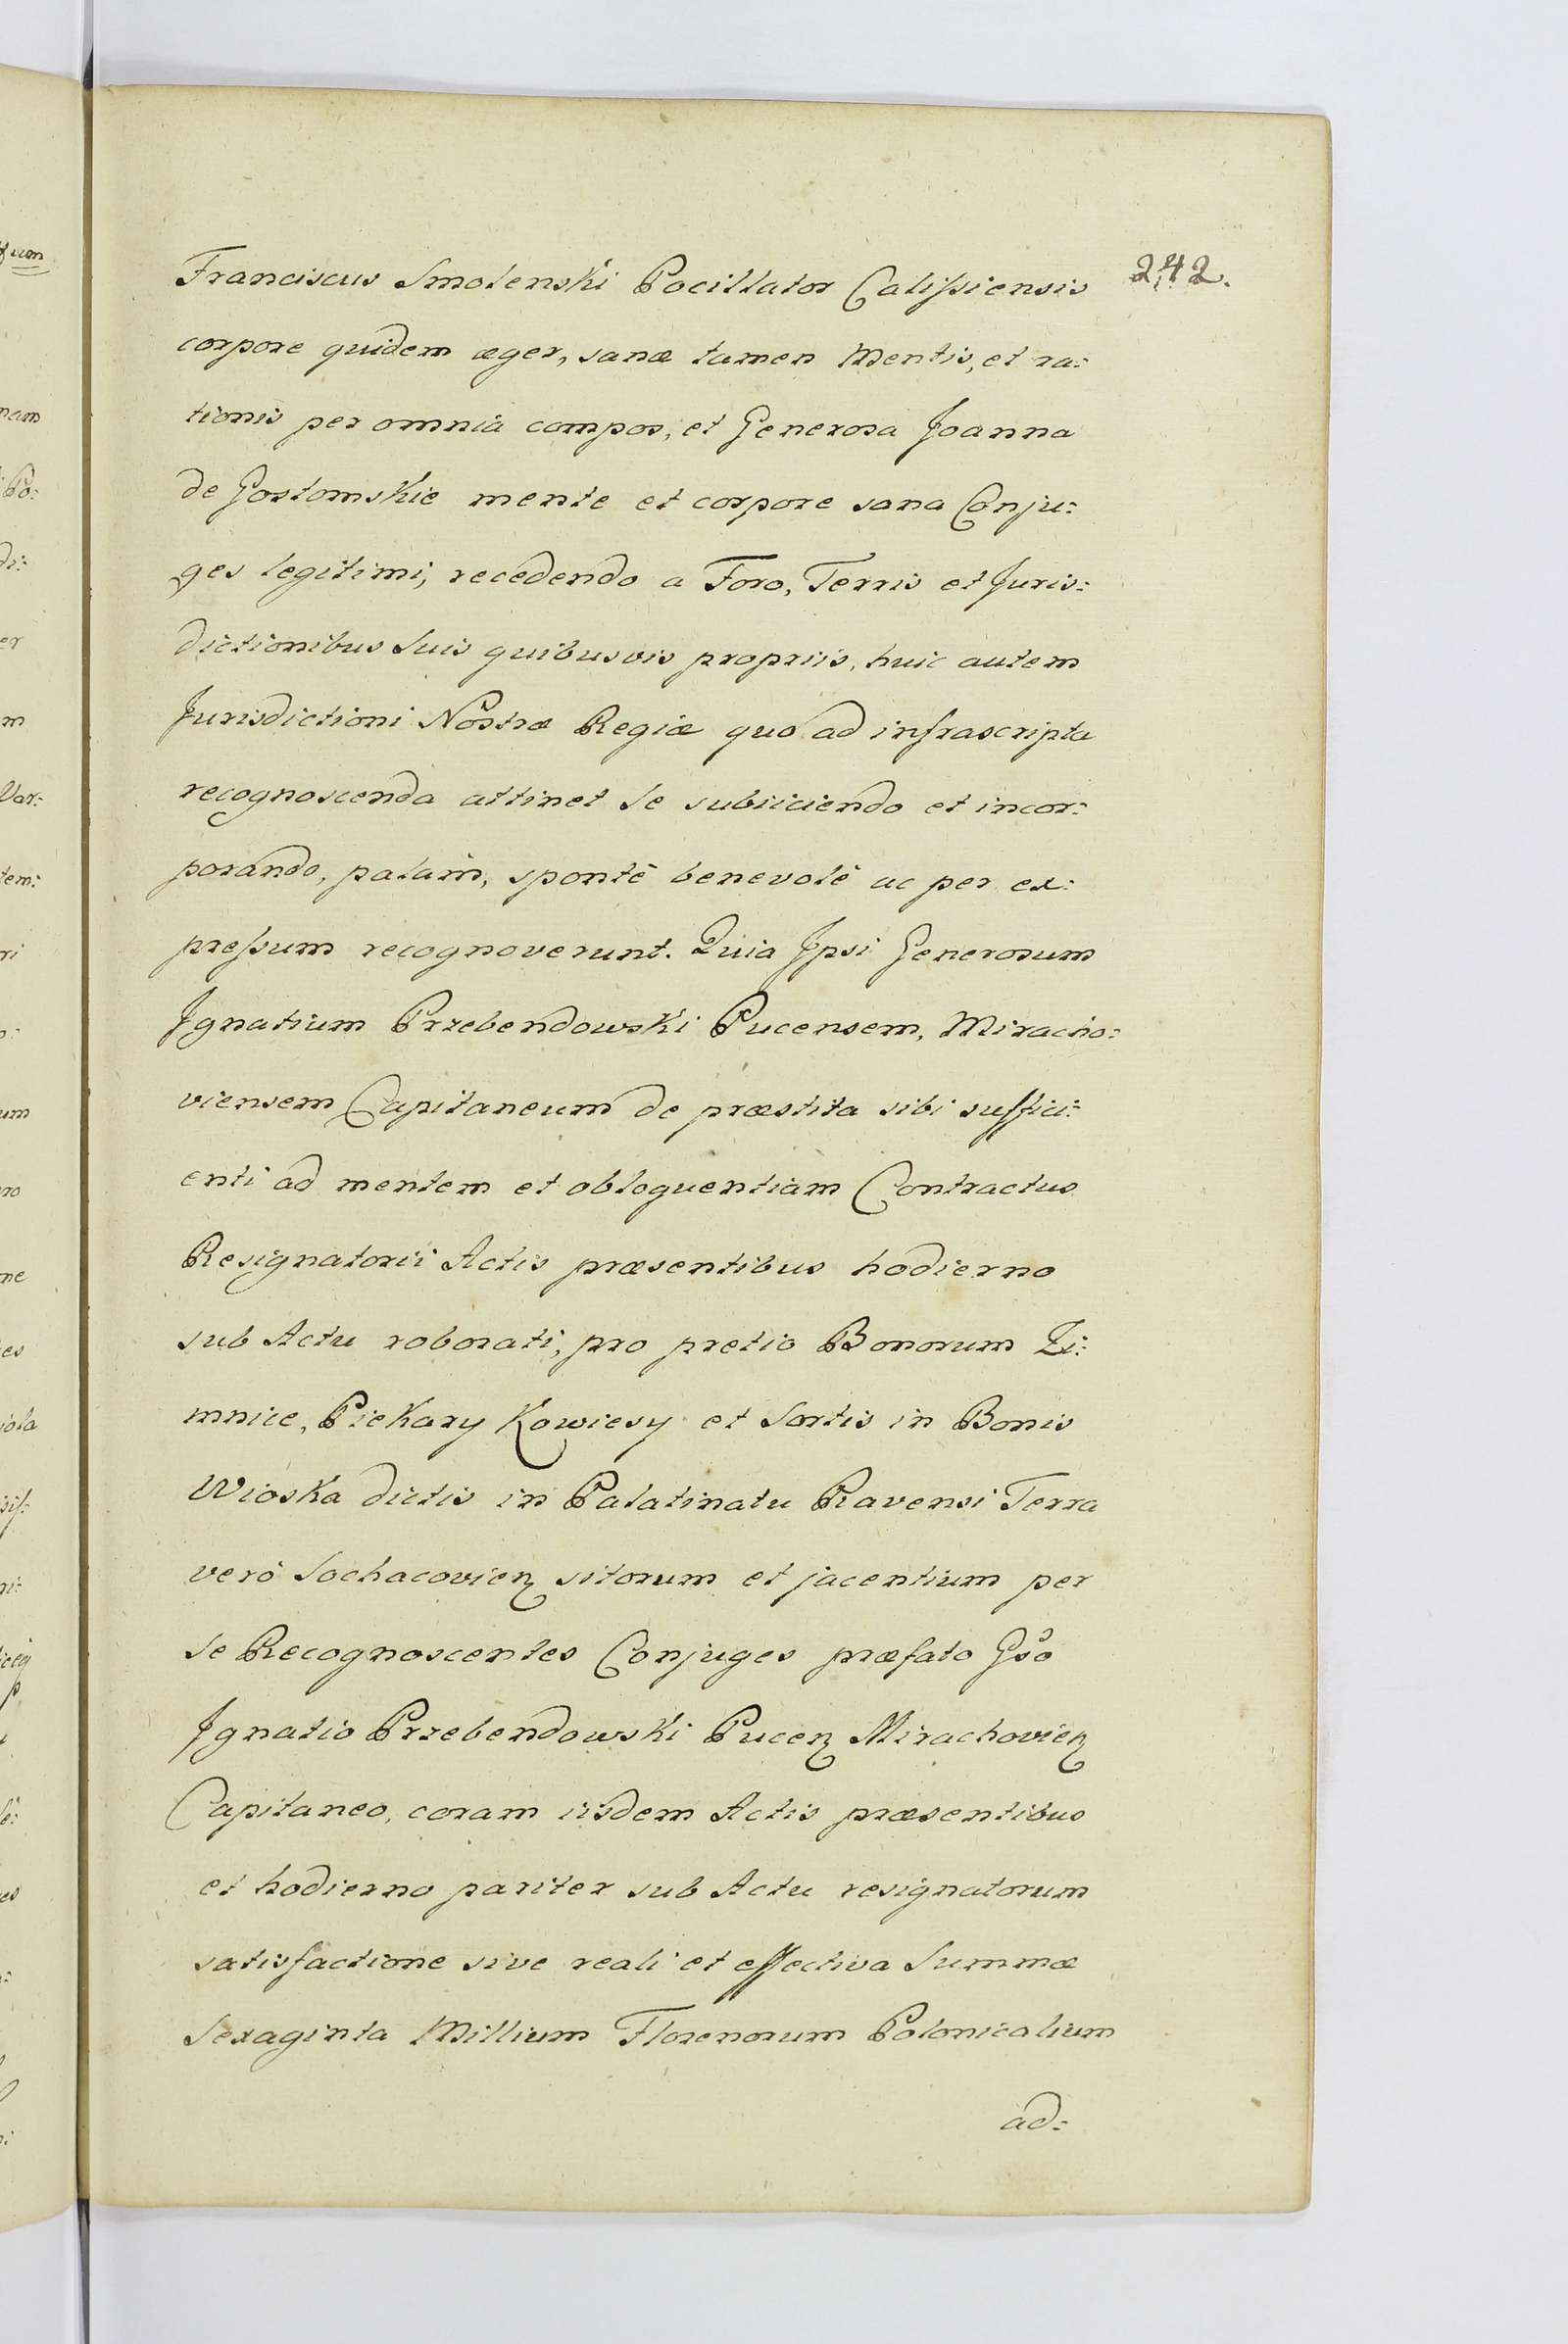 242.
Franciscus Smolenski Pocillator Calissiensis
corpore quidem æger, sanæ tamen Mentis, et ra:
tionis per omnia compos, et Generosa Joanna
de Gostomskie mente et corpore sana Conju:
ges legitimi, recedendo a Foro, Terris et Juris:
dictionibus Suis quibusvis propriis, huic autem
Jurisdictioni Nostræ Regiæ quo ad infrascripta
recognoscenda attinet Se subiiciendo et incor:
porando, palàm, spontè benevolè ac per ex:
pressum recognoverunt. Quia Jpsi Generosum
Jgnatium Przebendowski Pucensem, Miracho:
viensem Capitaneum de præstita sibi suffici:
enti ad mentem et obloquentiam Contractus
Resignatorii Actis præsentibus hodierno
sub Actu roborati, pro pretio Bonorum Zi:
mnice, Piekary Kowiesy et Sortis in Bonis
Wioska dictis in Palatinatu Ravensi Terra
verò Sochacovien sitorum et jacentium per
Se Recognoscentes Conjuges præfato Gso
Jgnatio Przebendowski Pucen Mirachovien
Capitaneo, coram iisdem Actis præsentibus
et hodierno pariter sub Actu resignatorum
satisfactione sive reali et effectiva Summæ
Sexaginta Millium Florenorum Polonicalium
ad: